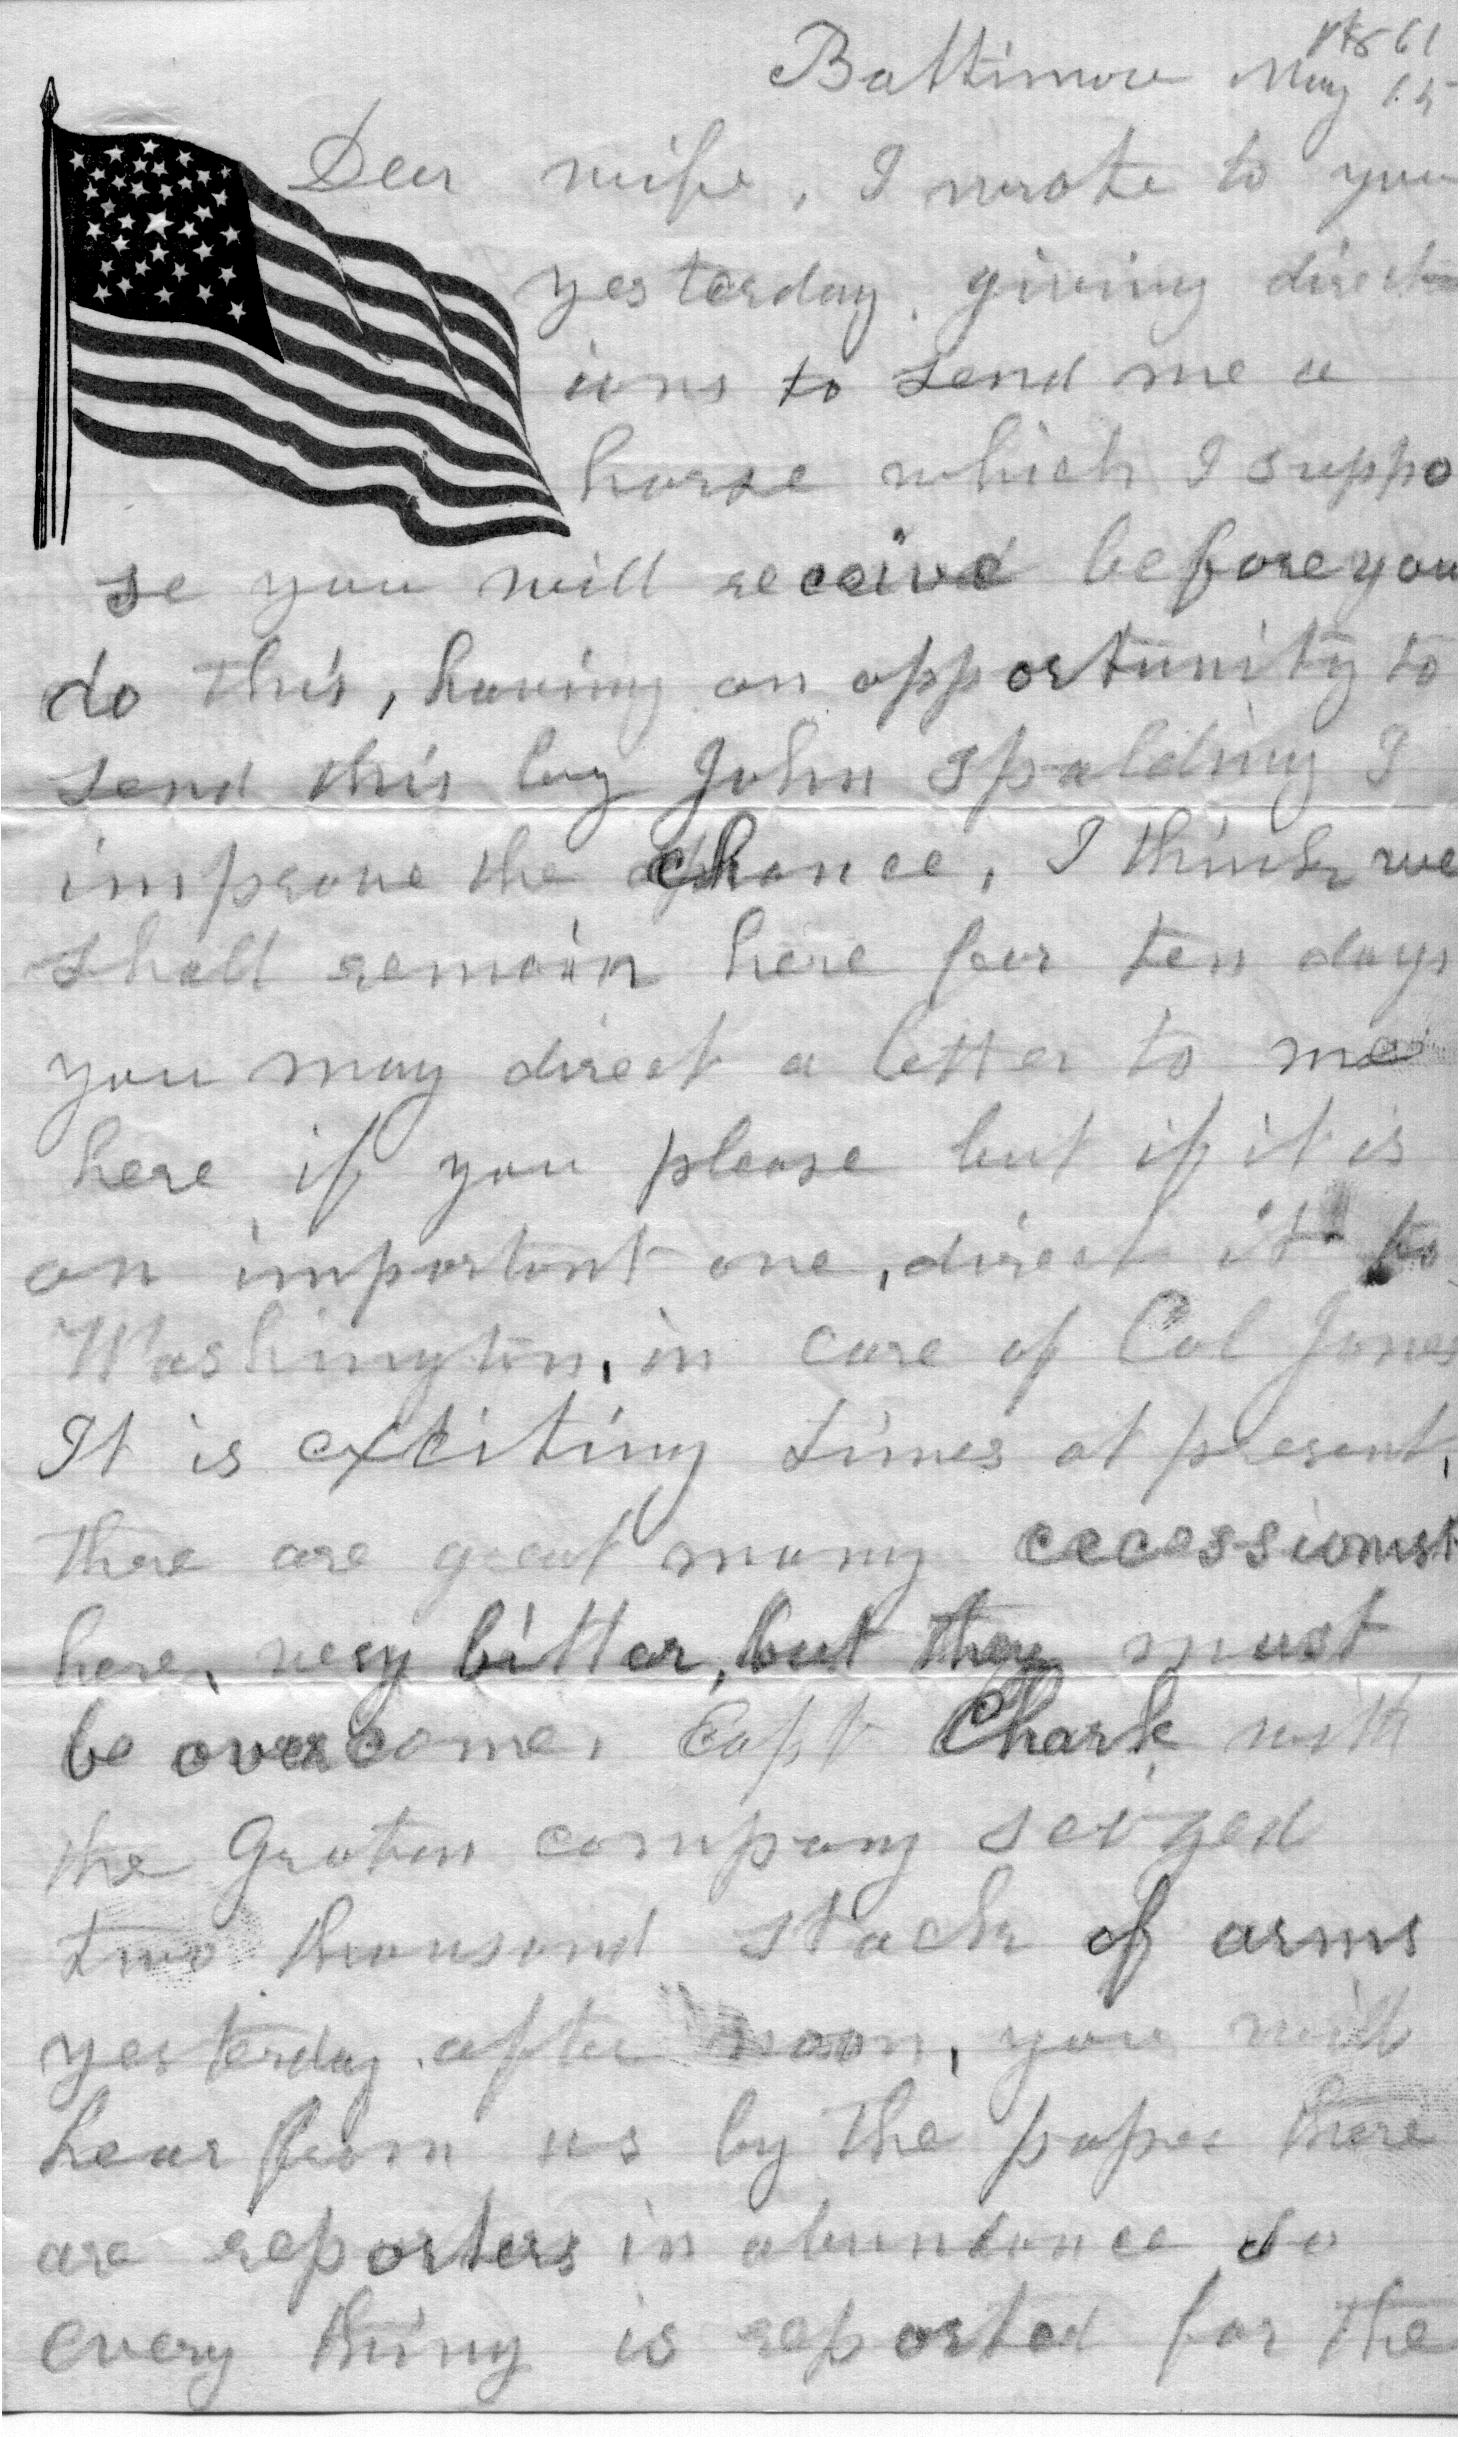 Baltimore May 15
Dear wife, I wrote to you
yesterday, giving direct
ions to send me a
horse which I suppo
se you will receive before you
do this, having an opportunity to
send this by John Spalding I
improve the chance, I think we
shall remain here for ten days
you may direct a letter to me
here if you please but if it is
an important one, direct it to
Washington, in care of Col Jones
It is exciting times at present,
there are great many cecessionist
here, very bitter, but they must
be overcome, Capt Chark with
the Groton company seized
two thousand stack of arms
yesterday after noon, you will
hear from us by the paper there
are reporters in abundance so
every thing is reported for the